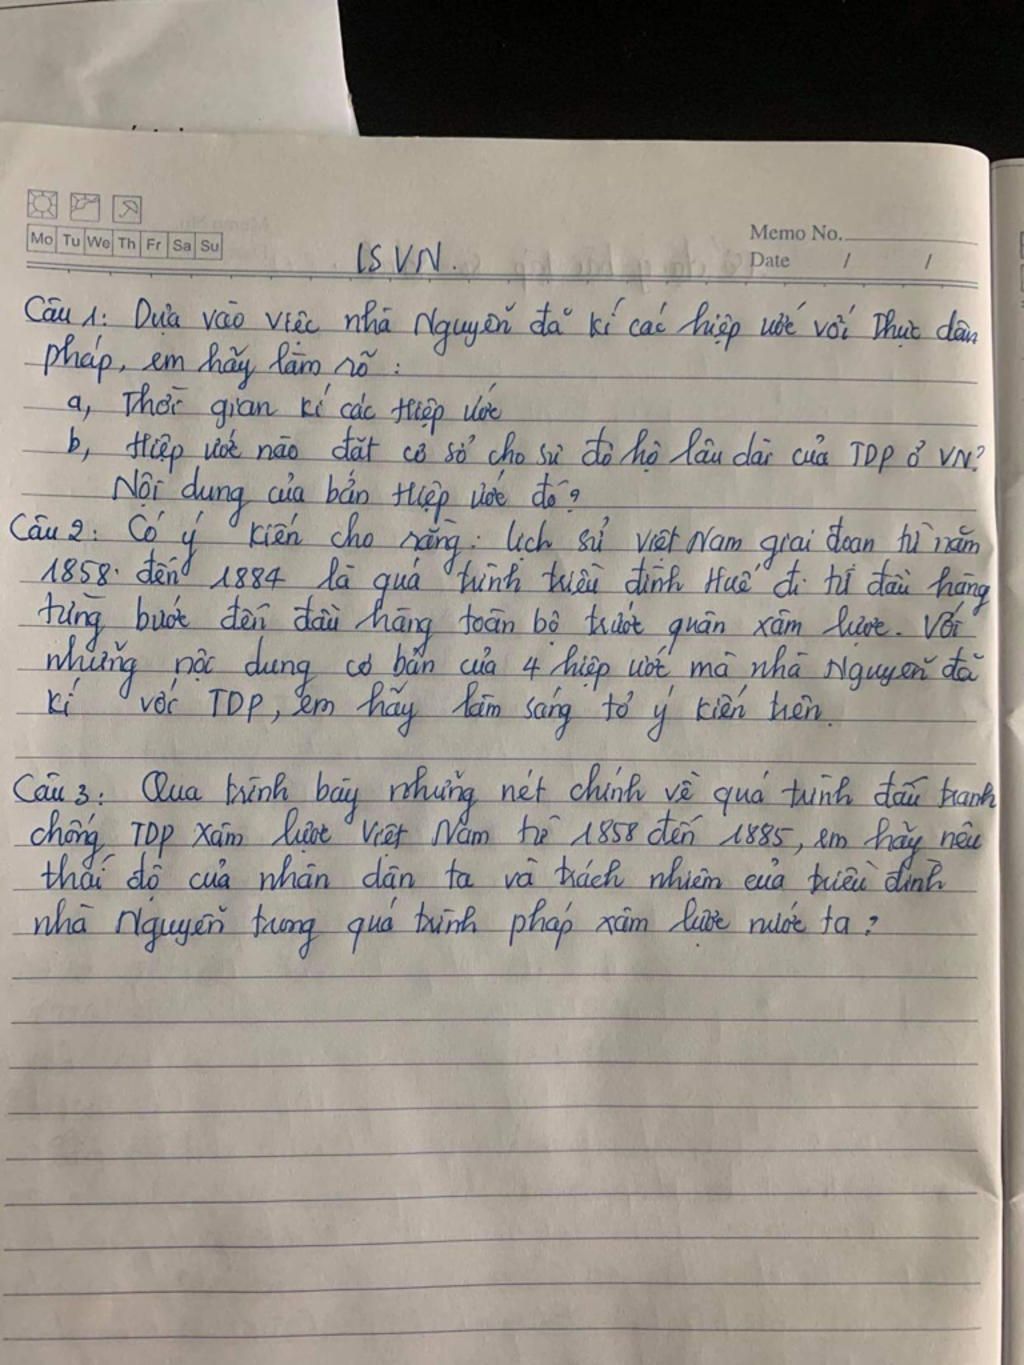 Mo Tu We Th Fr Sa Su
Memo No.
Date / /
LSVN.
Câu 1: Dựa vào việc nhà Nguyễn đã kí các hiệp ước với Thực dân
pháp, em hãy làm rõ :
a, Thời gian kí các Hiệp ước
b, Hiệp ước nào đặt cơ sở cho sự đô hộ lâu dài của TDP ở VN?
Nội dung của bản Hiệp ước đó?
Câu 2: Có ý kiến cho rằng: lịch sử Việt Nam giai đoạn từ năm
1858 đến 1884 là quá trình triều đình Huế đi từ đầu hàng
từng bước đến đầu hàng toàn bộ trước quân xâm lược. Với
những nội dung cơ bản của 4 hiệp ước mà nhà Nguyễn đã
kí với TDP, em hãy làm sáng tỏ ý kiến trên.
Câu 3: Qua trình bày những nét chính về quá trình đấu tranh
chống TDP xâm lược Việt Nam từ 1858 đến 1885, em hãy nêu
thái độ của nhân dân ta và trách nhiệm của triều đình
nhà Nguyễn trong quá trình pháp xâm lược nước ta?